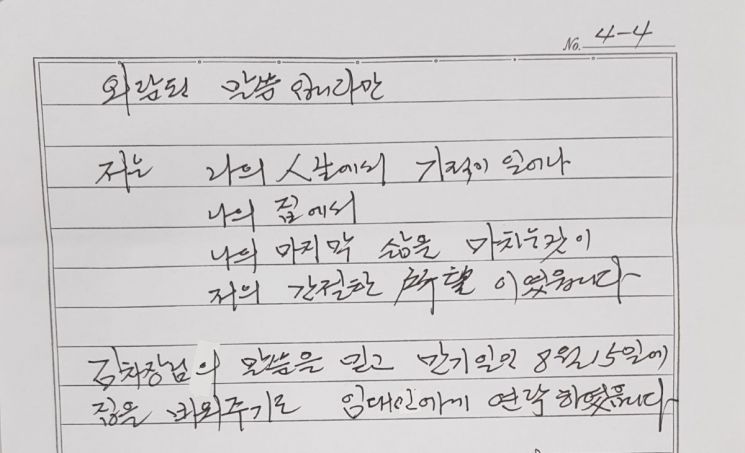 No. 4-4
외람된 말씀 입니다만
저는 나의 人生에서 기적이 일어나
나의 집에서
나의 마지막 삶을 마치는 것이
저의 간절한 所望 이였읍니다
김차장님의 말씀을 믿고 만기일인 8월15일에
집을 비워주기로 임대인에게 연락 하였읍니다